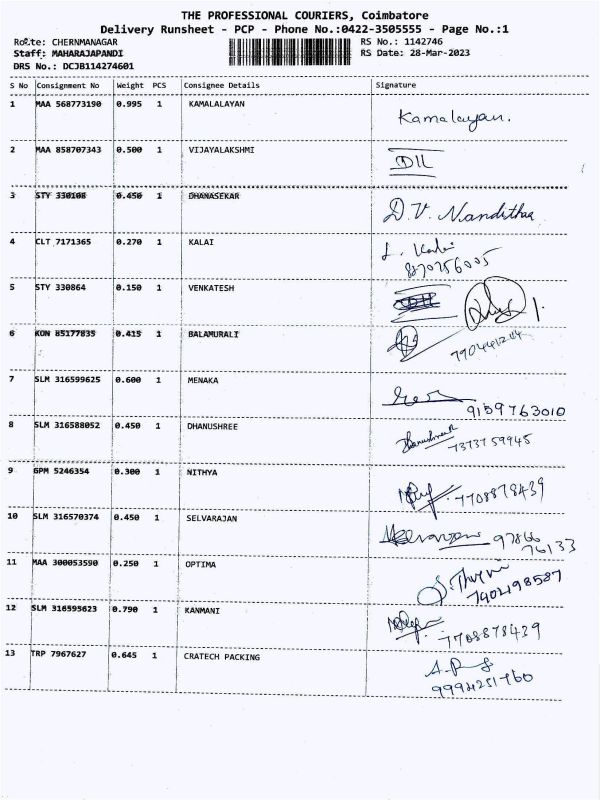 THE PROFESSIONAL COURIERS, Coimbatore
Delivery Runsheet - PCP - Phone No.:0422-3505555 - Page No.:1
Route: CHERNMANAGAR
RS No.: 1142746
Staff: MAHARAJAPANDI
RS Date: 28-Mar-2023
DRS No.: DCJB114274601
S No Consignment No Weight PCS Consignee Details Signature
1 MAA 568773190 0.995 1 KAMALALAYAN Kamalalayan.
2 MAA 858707343 0.500 1 VIJAYALAKSHMI
3 STY 330108 0.450 1 DHANASEKAR D.V. Nandithaa
4 CLT 7171365 0.270 1 KALAI L. Kalai
870756005
5 STY 330864 0.150 1 VENKATESH
6 KON 85177835 0.415 1 BALAMURALI
7 SLM 316599625 0.600 1 MENAKA
9159763010
8 SLM 316588052 0.450 1 DHANUSHREE
7373759945
9 GPM 5246354 0.300 1 NITHYA
7708878439
10 SLM 316570374 0.450 1 SELVARAJAN
97866
76133
11 MAA 300053590 0.250 1 OPTIMA
7402498587
12 SLM 316595623 0.790 1 KANMANI
7708878439
13 TRP 7967627 0.645 1 CRATECH PACKING
9994251760